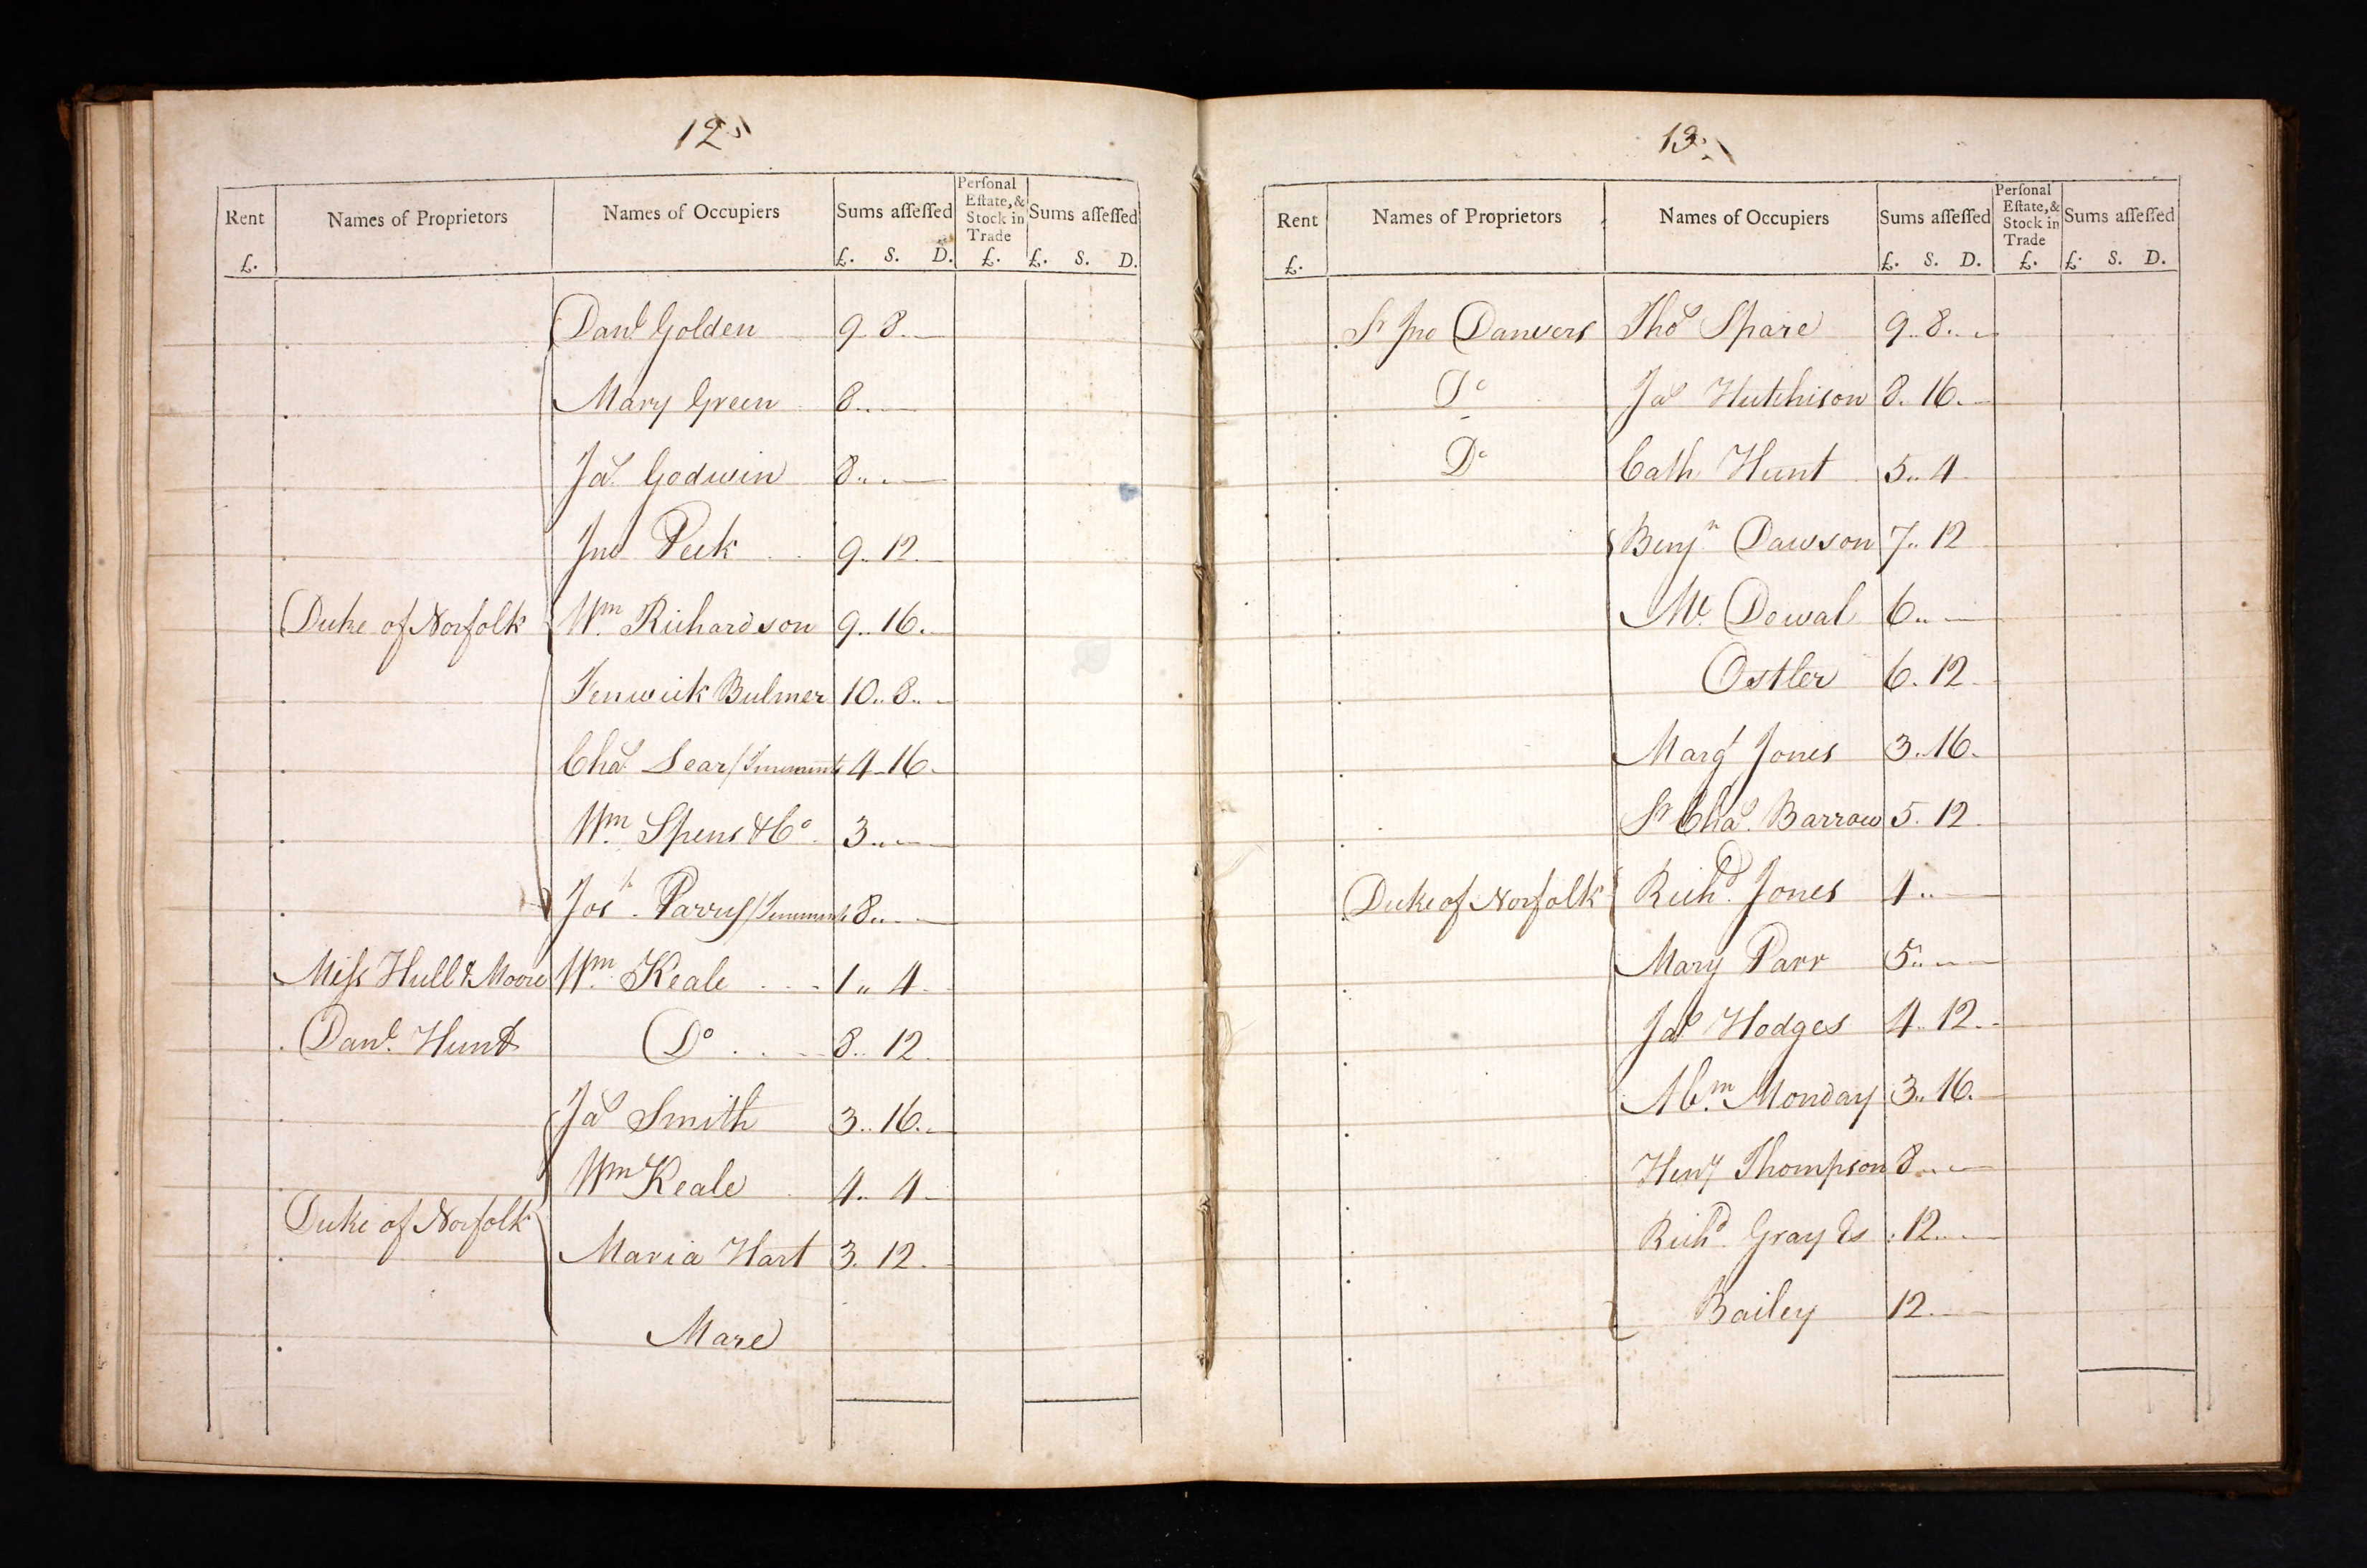 12
Rent £. Names of Proprietors Names of Occupiers Sums aſſeſſed £. S. D. Perſonal Eſtate, & Stock in Trade £. Sums aſſeſſed £. S. D.
Danl Golden 9 8 —
Mary Green 8 .. —
Jas Godwin 8 .. —
Jno Peek 9 .. 12 —
Duke of Norfolk Wm Richardson 9 .. 16 . —
Fenwick Bulmer 10 .. 8 .. —
Chas Sear / 4 — 16 —
Wm Spens & Co 3 .. —
Josh Parry / 8 .. —
Miſs Hull & Moore Wm Keale 1 .. 4 —
Danl Hunt Do 8 .. 12
Jas Smith 3 .. 16 . —
Wm Keale 4 .. 4 —
Duke of Norfolk
Maria Hart 3 . 12 .
Mare
13
Rent £. Names of Proprietors Names of Occupiers Sums aſſeſſed £. S. D. Perſonal Eſtate, & Stock in Trade £. Sums aſſeſſed £. S. D.
Sr Jno Danvers Thos Spare 9 .. 8 . —
Do Jas Hutchison 8 . 16 . —
Do Cath Hunt 5 .. 4
Benjn Dawson 7 .. 12
Mc Dowal 6 .. —
Ostler 6 . 12
Margt Jones 3 . 16 .
Sr Chas Barrow 5 . 12
Duke of Norfolk Richd Jones 4 .. —
Mary Parr 5 .. —
Jas Hodges 4 .. 12 . .
Abm Monday 3 .. 16 . —
Heny Thompson 8 .. —
Richd Gray Es 12 .. —
Bailey 12 . —